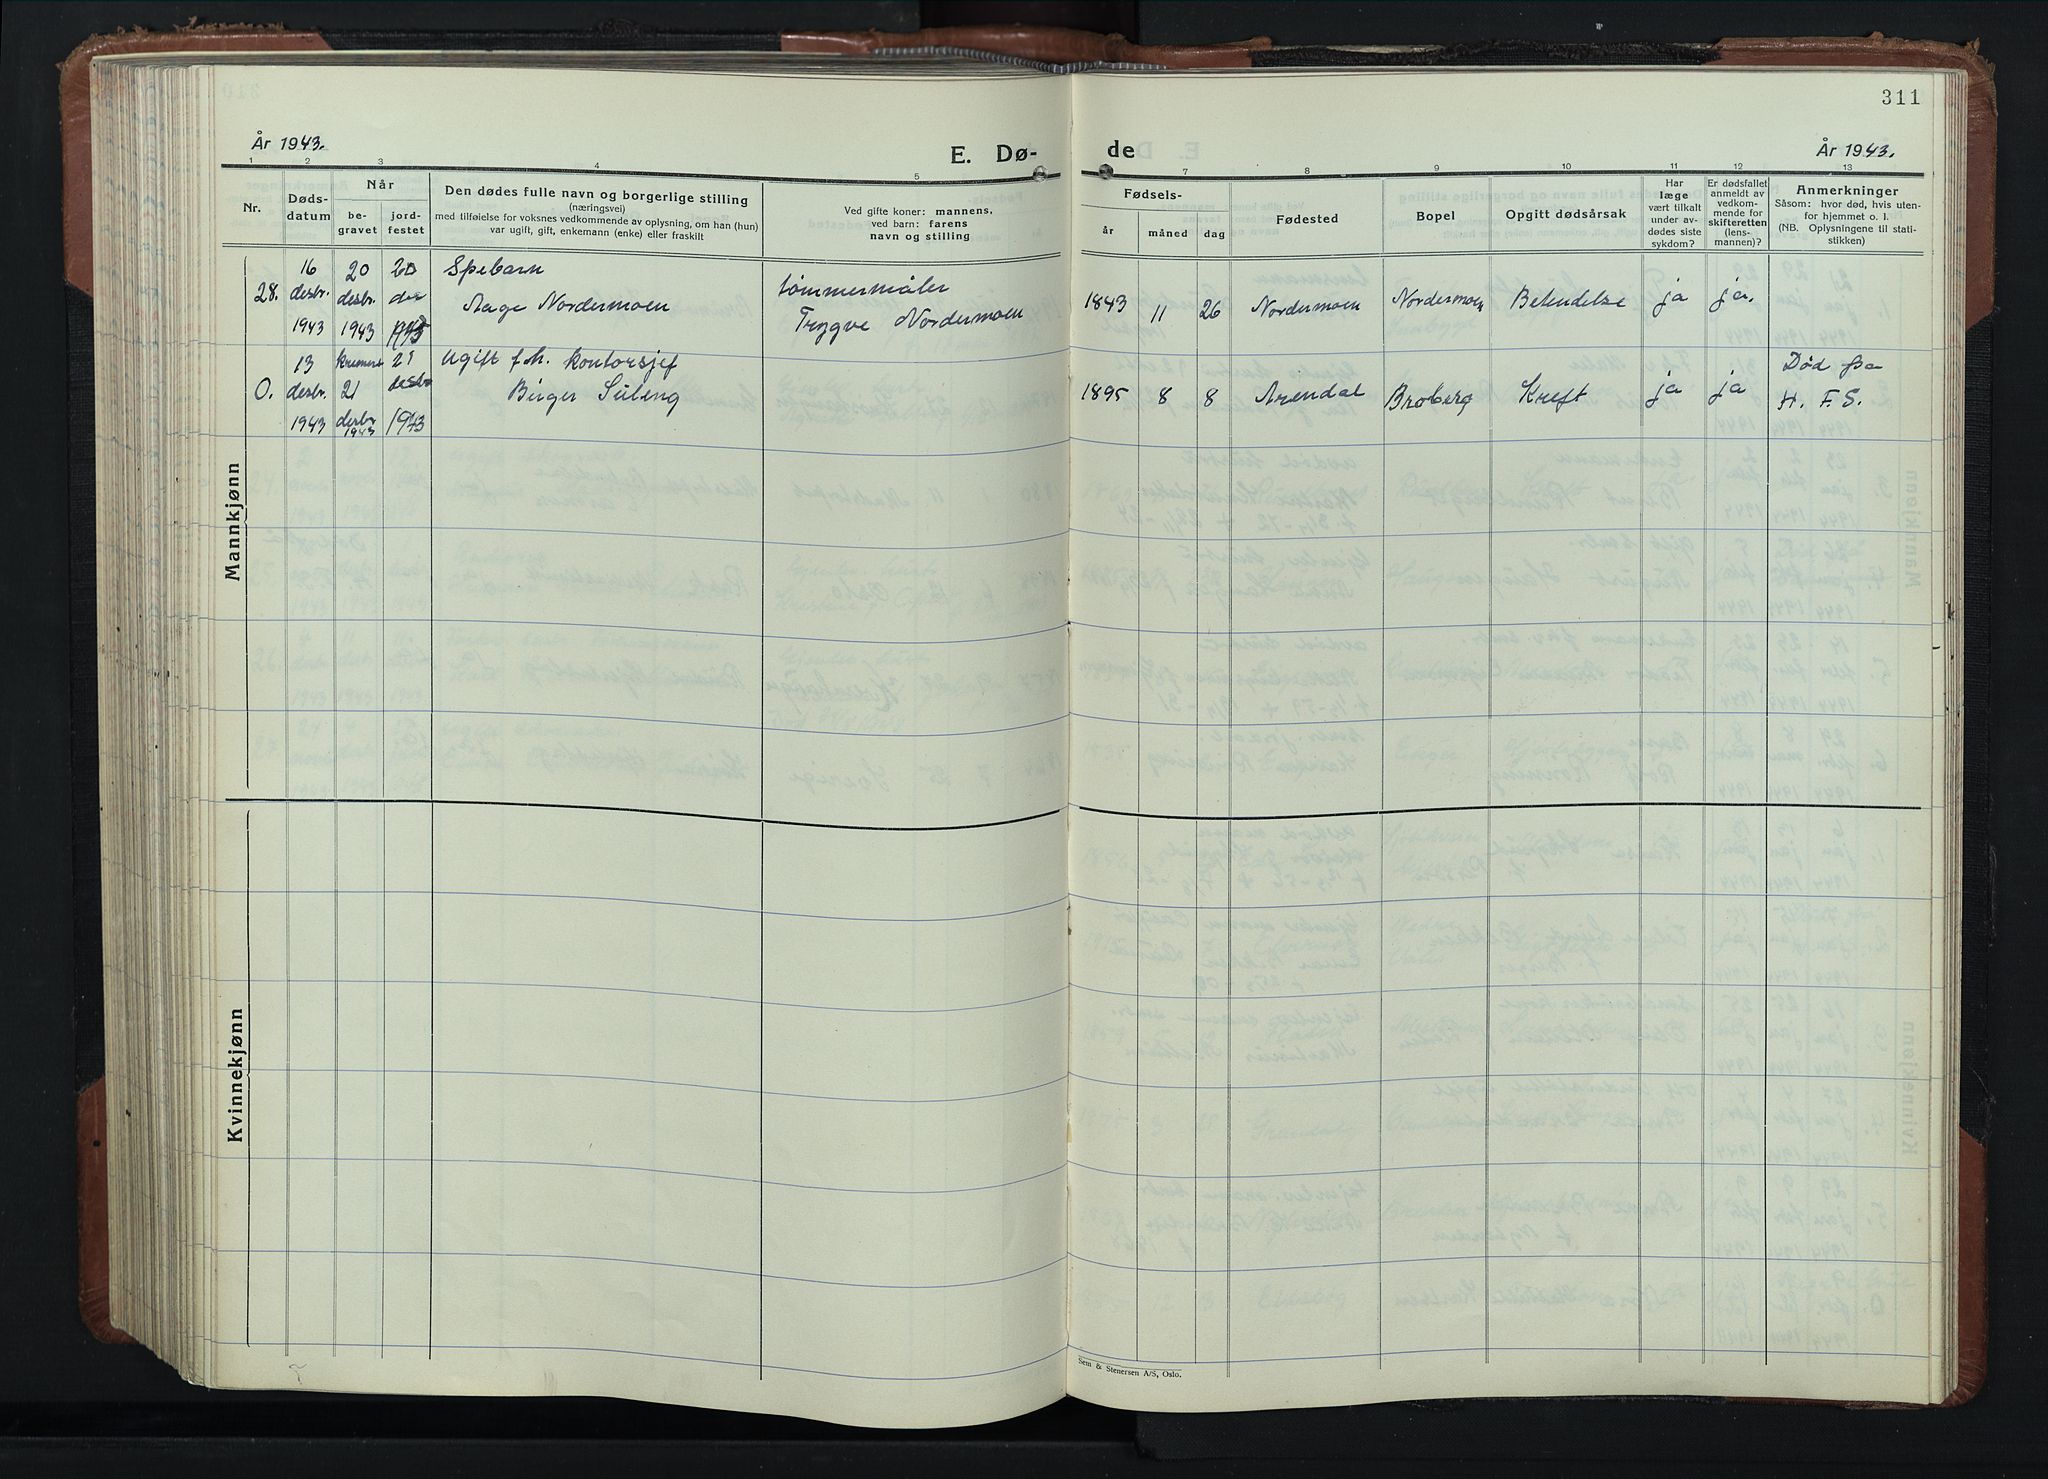 311
År 1943.
E. Dø-
de
År 1943.
1 2 3 4 5 7 8 9 10 11 12 13
Nr.
Døds-
datum
Når
be-
gravet
jord-
festet
Den dødes fulle navn og borgerlige stilling
(næringsvei)
med tilføielse for voksnes vedkommende av oplysning, om han (hun)
var ugift, gift, enkemann (enke) eller fraskilt
Ved gifte koner: mannens,
ved barn: farens
navn og stilling
Fødsels-
år måned dag
Fødested
Bopel
Opgitt dødsårsak
Har
læge
vært tilkalt
under av-
dødes siste
sykdom?
Er dødsfallet
anmeldt av
vedkom-
mende for
skifteretten
(lens-
mannen)?
Anmerkninger
Såsom: hvor død, hvis uten-
for hjemmet o. l.
(NB. Oplysningene til stati-
stikken)
Mannkjønn
28.
16
desbr.
1943
20
desbr.
1943
20
des
1943
Spebarn
Aage Nordermoen
tømmermåler
Trygve Nordermoen
1843 11 26 Nordermoen Nordermoen Betendelse ja ja.
0.
13
desbr.
1943
kremert
21
desbr
1943
21
desbr
1943
ugift fh. kontorsjef
Birger
1895 8 8 Arendal Broberg Kreft ja ja
Død fra
H. F. S.
Kvinnekjønn
Sem & Stenersen A/S, Oslo.